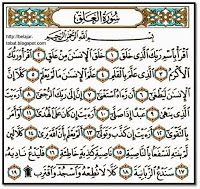 سُورَةُ العَلَقِ
http://belajar-
tobat.blogspot.com
بِسْمِ اللَّهِ الرَّحْمَٰنِ الرَّحِيمِ
اقْرَأْ بِاسْمِ رَبِّكَ الَّذِي خَلَقَ ١ خَلَقَ الْإِنسَانَ مِنْ عَلَقٍ ٢ اقْرَأْ وَرَبُّكَ
الْأَكْرَمُ ٣ الَّذِي عَلَّمَ بِالْقَلَمِ ٤ عَلَّمَ الْإِنسَانَ مَا لَمْ يَعْلَمْ ٥ كَلَّا إِنَّ
الْإِنسَانَ لَيَطْغَىٰ ٦ أَن رَّآهُ اسْتَغْنَىٰ ٧ إِنَّ إِلَىٰ رَبِّكَ الرُّجْعَىٰ ٨ أَرَأَيْتَ
الَّذِي يَنْهَىٰ ٩ عَبْدًا إِذَا صَلَّىٰ ١٠ أَرَأَيْتَ إِن كَانَ عَلَى الْهُدَىٰ ١١ أَوْ أَمَرَ
بِالتَّقْوَىٰ ١٢ أَرَأَيْتَ إِن كَذَّبَ وَتَوَلَّىٰ ١٣ أَلَمْ يَعْلَم بِأَنَّ اللَّهَ يَرَىٰ ١٤ كَلَّا
لَئِن لَّمْ يَنتَهِ لَنَسْفَعًا بِالنَّاصِيَةِ ١٥ نَاصِيَةٍ كَاذِبَةٍ خَاطِئَةٍ ١٦ فَلْيَدْعُ نَادِيَهُ
١٧ سَنَدْعُ الزَّبَانِيَةَ ١٨ كَلَّا لَا تُطِعْهُ وَاسْجُدْ وَاقْتَرِب ١٩